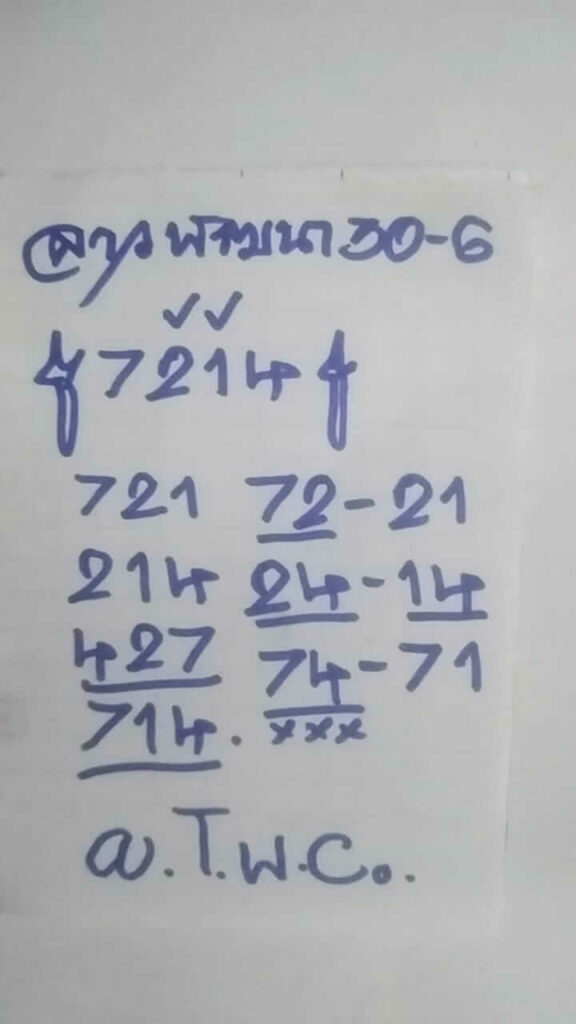 ลาวพัฒนา 30-6
✓✓
7214
721 72-21
214 24-14
427 74-71
714. xxx